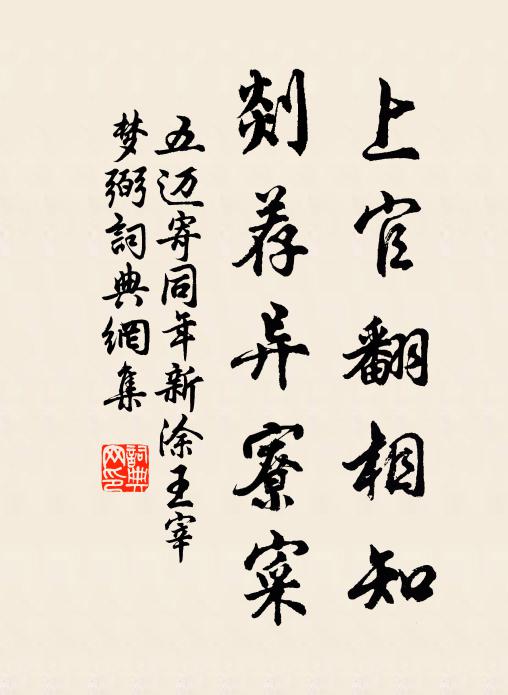 上官翻相知
剡荐异寮寀
五迈寄同年新淦王宰
梦弼詞典網集
詞典网印